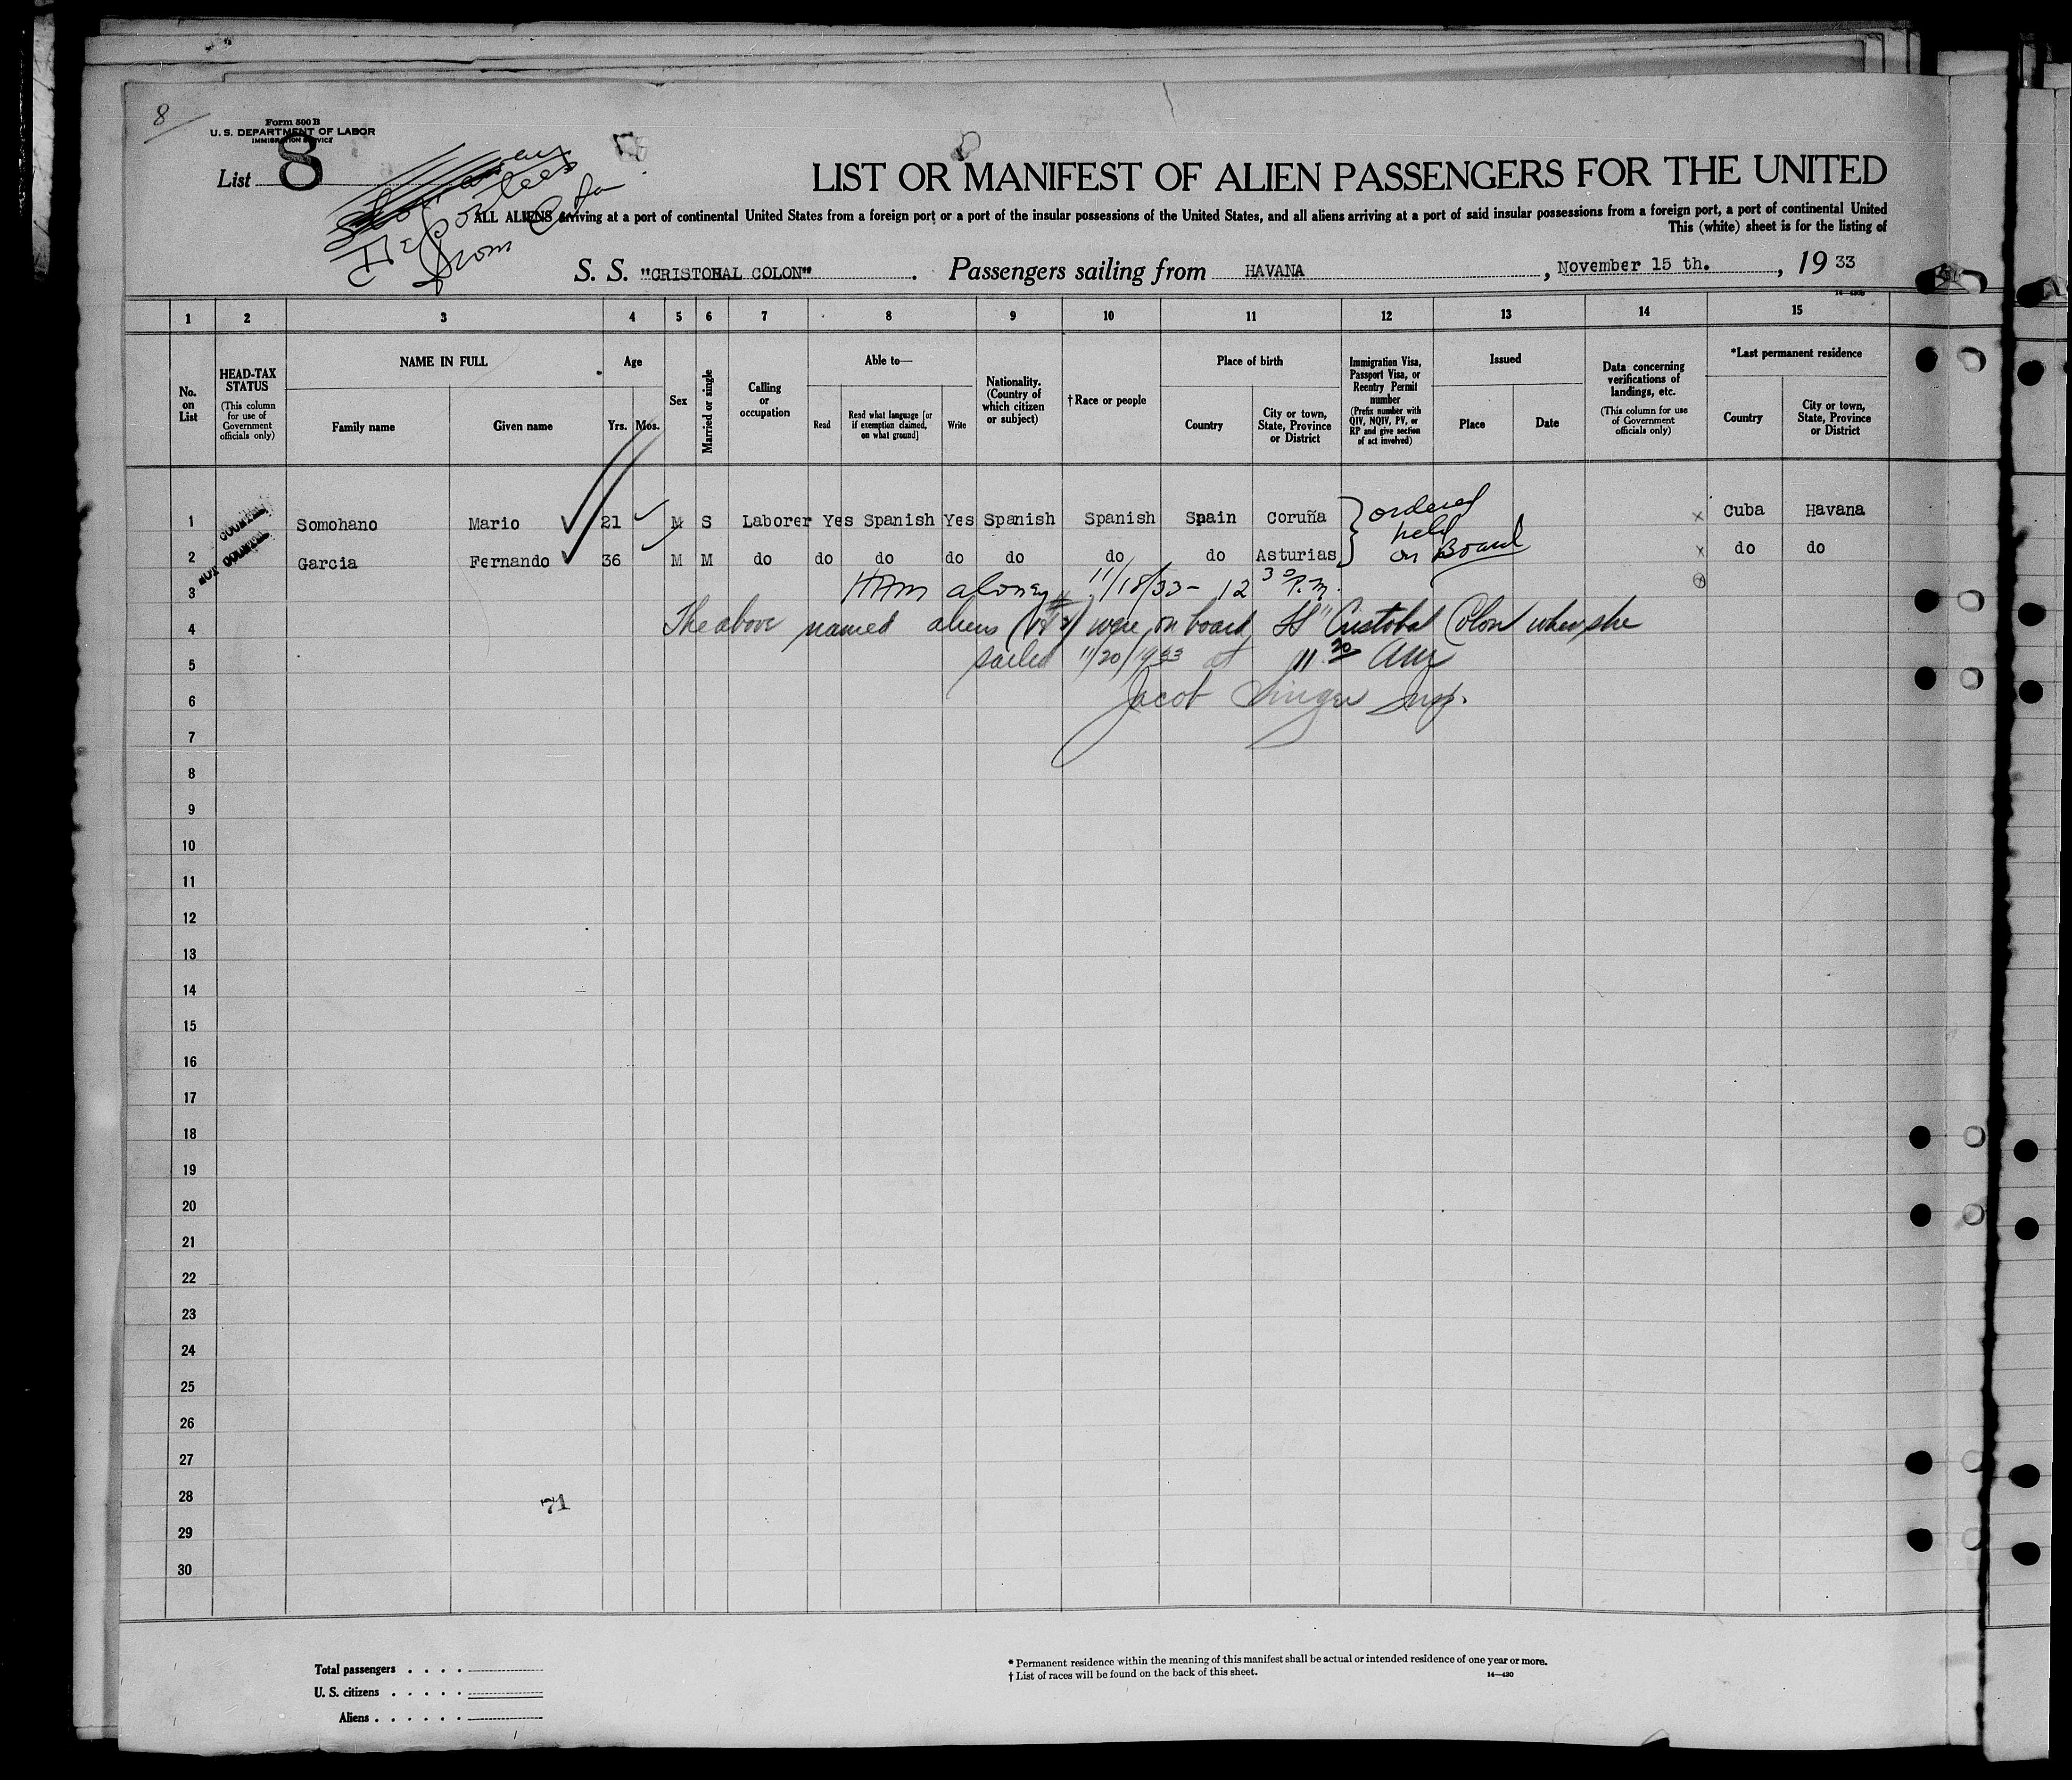 8
Form 500 B
U. S. DEPARTMENT OF LABOR
IMMIGRATION SERVICE
List 8
Deportees
from Cuba
LIST OR MANIFEST OF ALIEN PASSENGERS FOR THE UNITED
ALL ALIENS arriving at a port of continental United States from a foreign port or a port of the insular possessions of the United States, and all aliens arriving at a port of said insular possessions from a foreign port, a port of continental United
This (white) sheet is for the listing of
S. S. "CRISTOBAL COLON" . Passengers sailing from HAVANA , November 15 th. , 19 33
1 2 3 4 5 6 7 8 9 10 11 12 13 14 15
No. on List
HEAD-TAX STATUS
(This column for use of Government officials only)
NAME IN FULL
Family name Given name
Age
Yrs. Mos.
Sex
Married or single
Calling or occupation
Able to—
Read
Read what language [or if exemption claimed, on what ground]
Write
Nationality. (Country of which citizen or subject)
† Race or people
Place of birth
Country
City or town, State, Province or District
Immigration Visa, Passport Visa, or Reentry Permit number
(Prefix number with QIV, NQIV, PV, or RP and give section of act involved)
Issued
Place Date
Data concerning verifications of landings, etc.
(This column for use of Government officials only)
*Last permanent residence
Country
City or town, State, Province or District
1 Somohano Mario 21 M S Laborer Yes Spanish Yes Spanish Spanish Spain Coruña x Cuba Havana
2 NOT COUNTED Garcia Fernando 36 M M do do do do do do do Asturias x do do
ordered
held
on Board
3 11/18/33 - 12 30 P.M.
4 The above named aliens (1 & 2) were on board SS "Cristobal Colon when she
5 sailed 11/20/1933 at 11 20 AM
6 Jacob Singer Insp.
7
8
9
10
11
12
13
14
15
16
17
18
19
20
21
22
23
24
25
26
27
28
71
29
30
Total passengers . . . .
U. S. citizens . . . . .
Aliens . . . . . .
* Permanent residence within the meaning of this manifest shall be actual or intended residence of one year or more.
† List of races will be found on the back of this sheet.
14—430